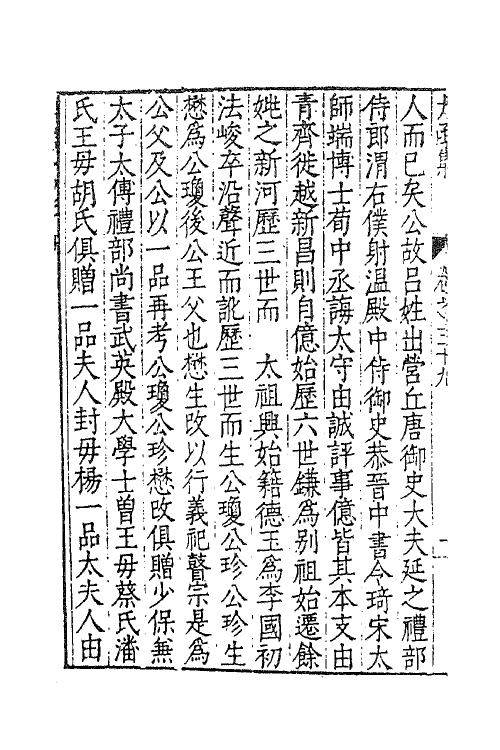 卷之三十九
人而已矣公故吕姓出營丘唐御史大夫延之禮部
侍郎渭右僕射温殿中侍御史恭晉中書令琦宋太
師端博士荀中丞誨太守由誠評事億皆其本支由
青齊徙越新昌則自億始歷六世鎌為别祖始遷餘
姚之新河歷三世而　太祖興始籍德玉為李國初
法峻卒沿聲近而訛歷三世而生公瓊公珍公珍生
懋為公瓊後公王父也懋生改以行義祀瞽宗是為
公父及公以一品再考公瓊公珍懋改俱贈少保兼
太子太傅禮部尚書武英殿大學士曾王毋蔡氏潘
氏王毋胡氏俱贈一品夫人封毋楊一品太夫人由